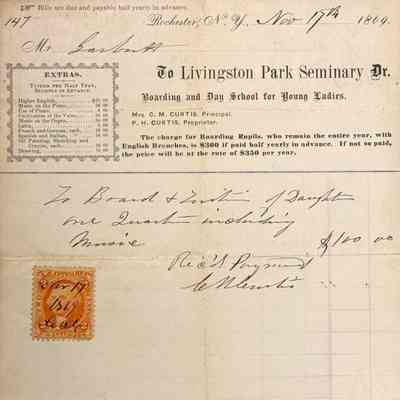 Bills are due and payable half yearly in advance.
147 Rochester, N. Y. Nov 17th 1869.
Mr. Garbutt
EXTRAS.
TUITION PER HALF YEAR,
Higher English,
Music on the Piano,
Use of Piano,
Cultivation of the Voice,
Music on the Organ,
Latin,
French and German, each,
Spanish and Italian, "
Oil Painting, Sketching and
Crayon, each,
Drawing,
To LIVINGSTON PARK SEMINARY Dr.
Boarding and Day School for Young Ladies.
Mrs. C. M. CURTIS, Principal.
P. H. CURTIS, Proprietor.
The charge for Boarding Pupils, who remain the entire year, with
English Branches, is $300 if paid half yearly in advance. If not so paid,
the price will be at the rate of $350 per year.
To Board & Tuition of Daught
one Quarter including
Music $100 00
Rec'd Payment
C M Curtis
Nov 17
1869